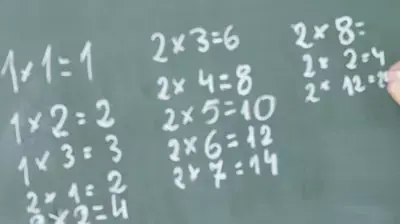 1×1=1
1×2=2
1×3=3
2×1=2
2×2=4
2×3=6
2×4=8
2×5=10
2×6=12
2×7=14
2×8=
2× 2=4
2× 12=2